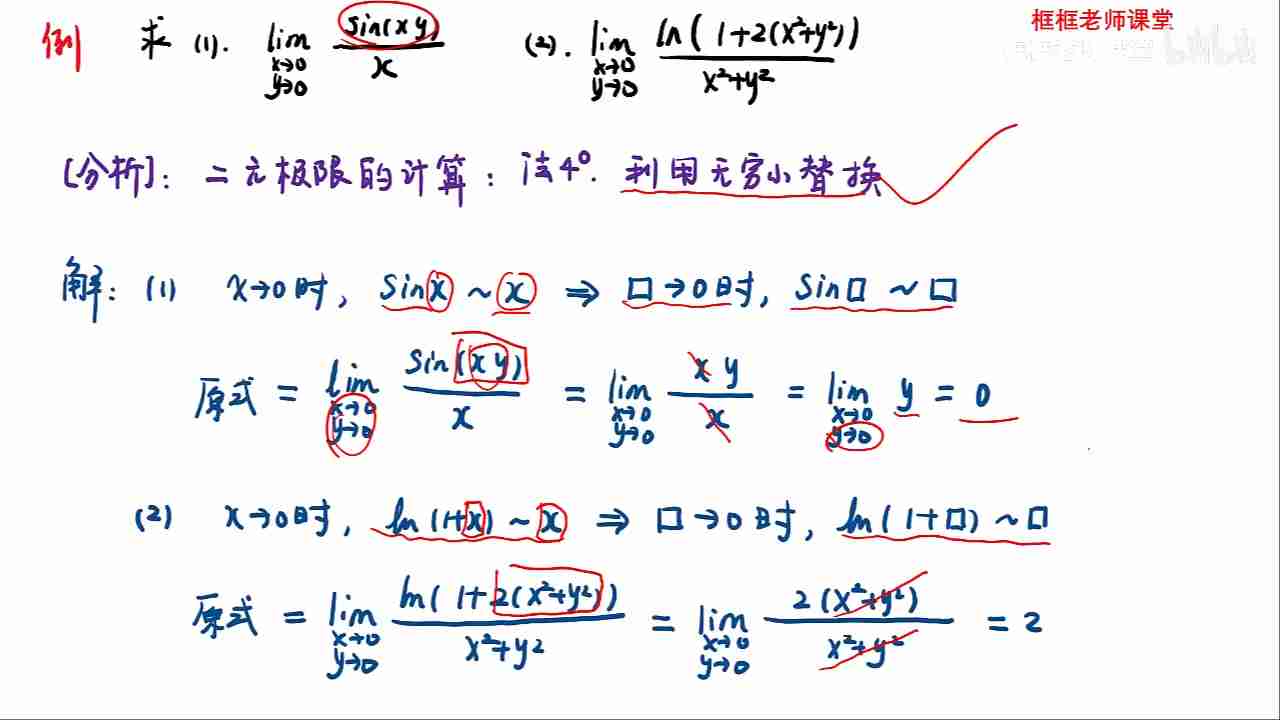 框框老师课堂
例 求 (1). lim x→0 y→0 sin(xy)/x (2). lim x→0 y→0 ln(1+2(x²+y²))/x²+y²
[分析]: 二元极限的计算: 法4°. 利用无穷小替换
解: (1) x→0时, sinx ~ x ⇒ □→0时, sin□ ~ □
原式 = lim x→0 y→0 sin(xy)/x = lim x→0 y→0 xy/x = lim x→0 y→0 y = 0
(2) x→0时, ln(1+x) ~ x ⇒ □→0时, ln(1+□) ~ □
原式 = lim x→0 y→0 ln(1+2(x²+y²))/x²+y² = lim x→0 y→0 2(x²+y²)/x²+y² = 2